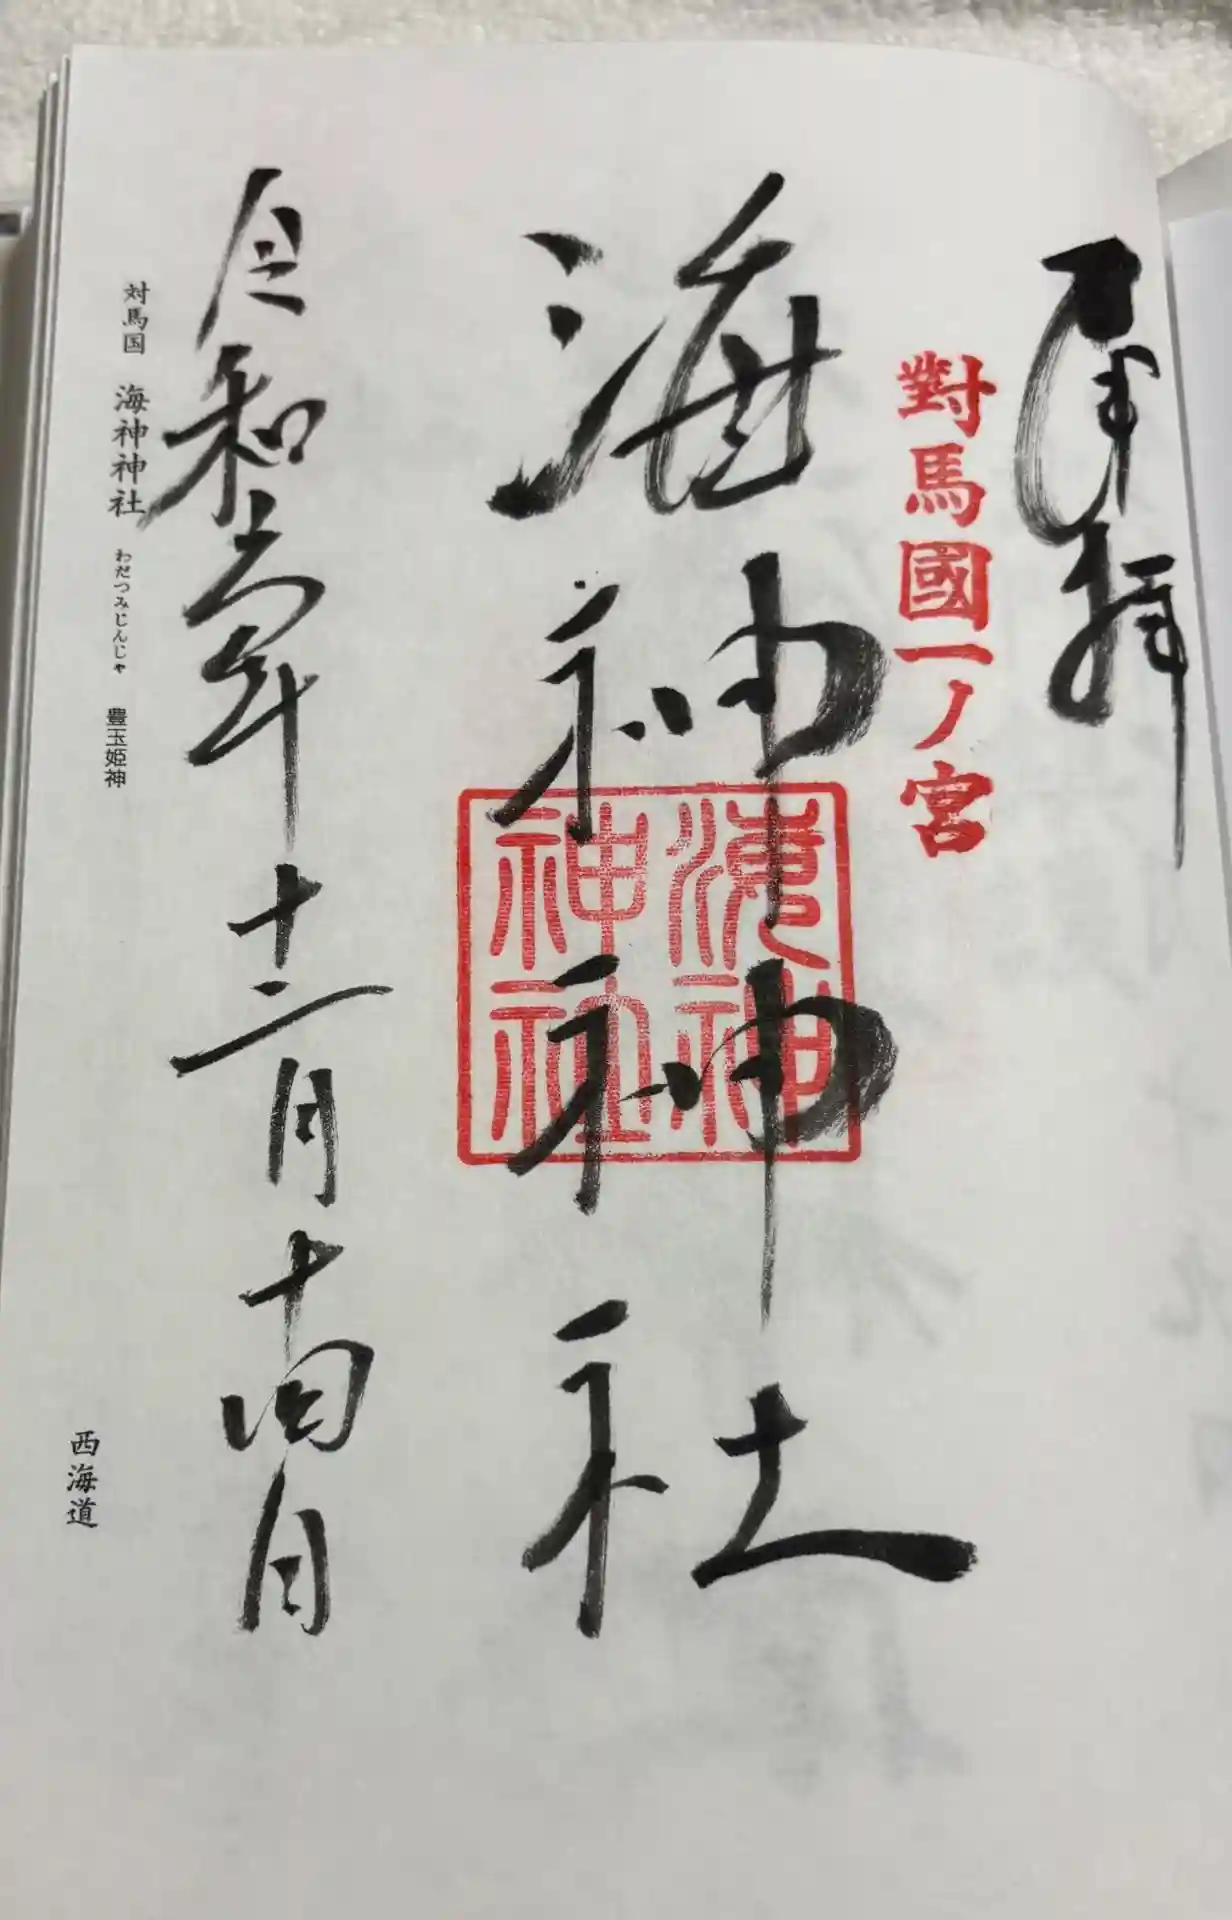 奉拝
對馬國一ノ宮
海神神社
海神
神社
令和六年十二月十四日
対馬国 海神神社 わだつみじんじゃ 豊玉姫神
西海道